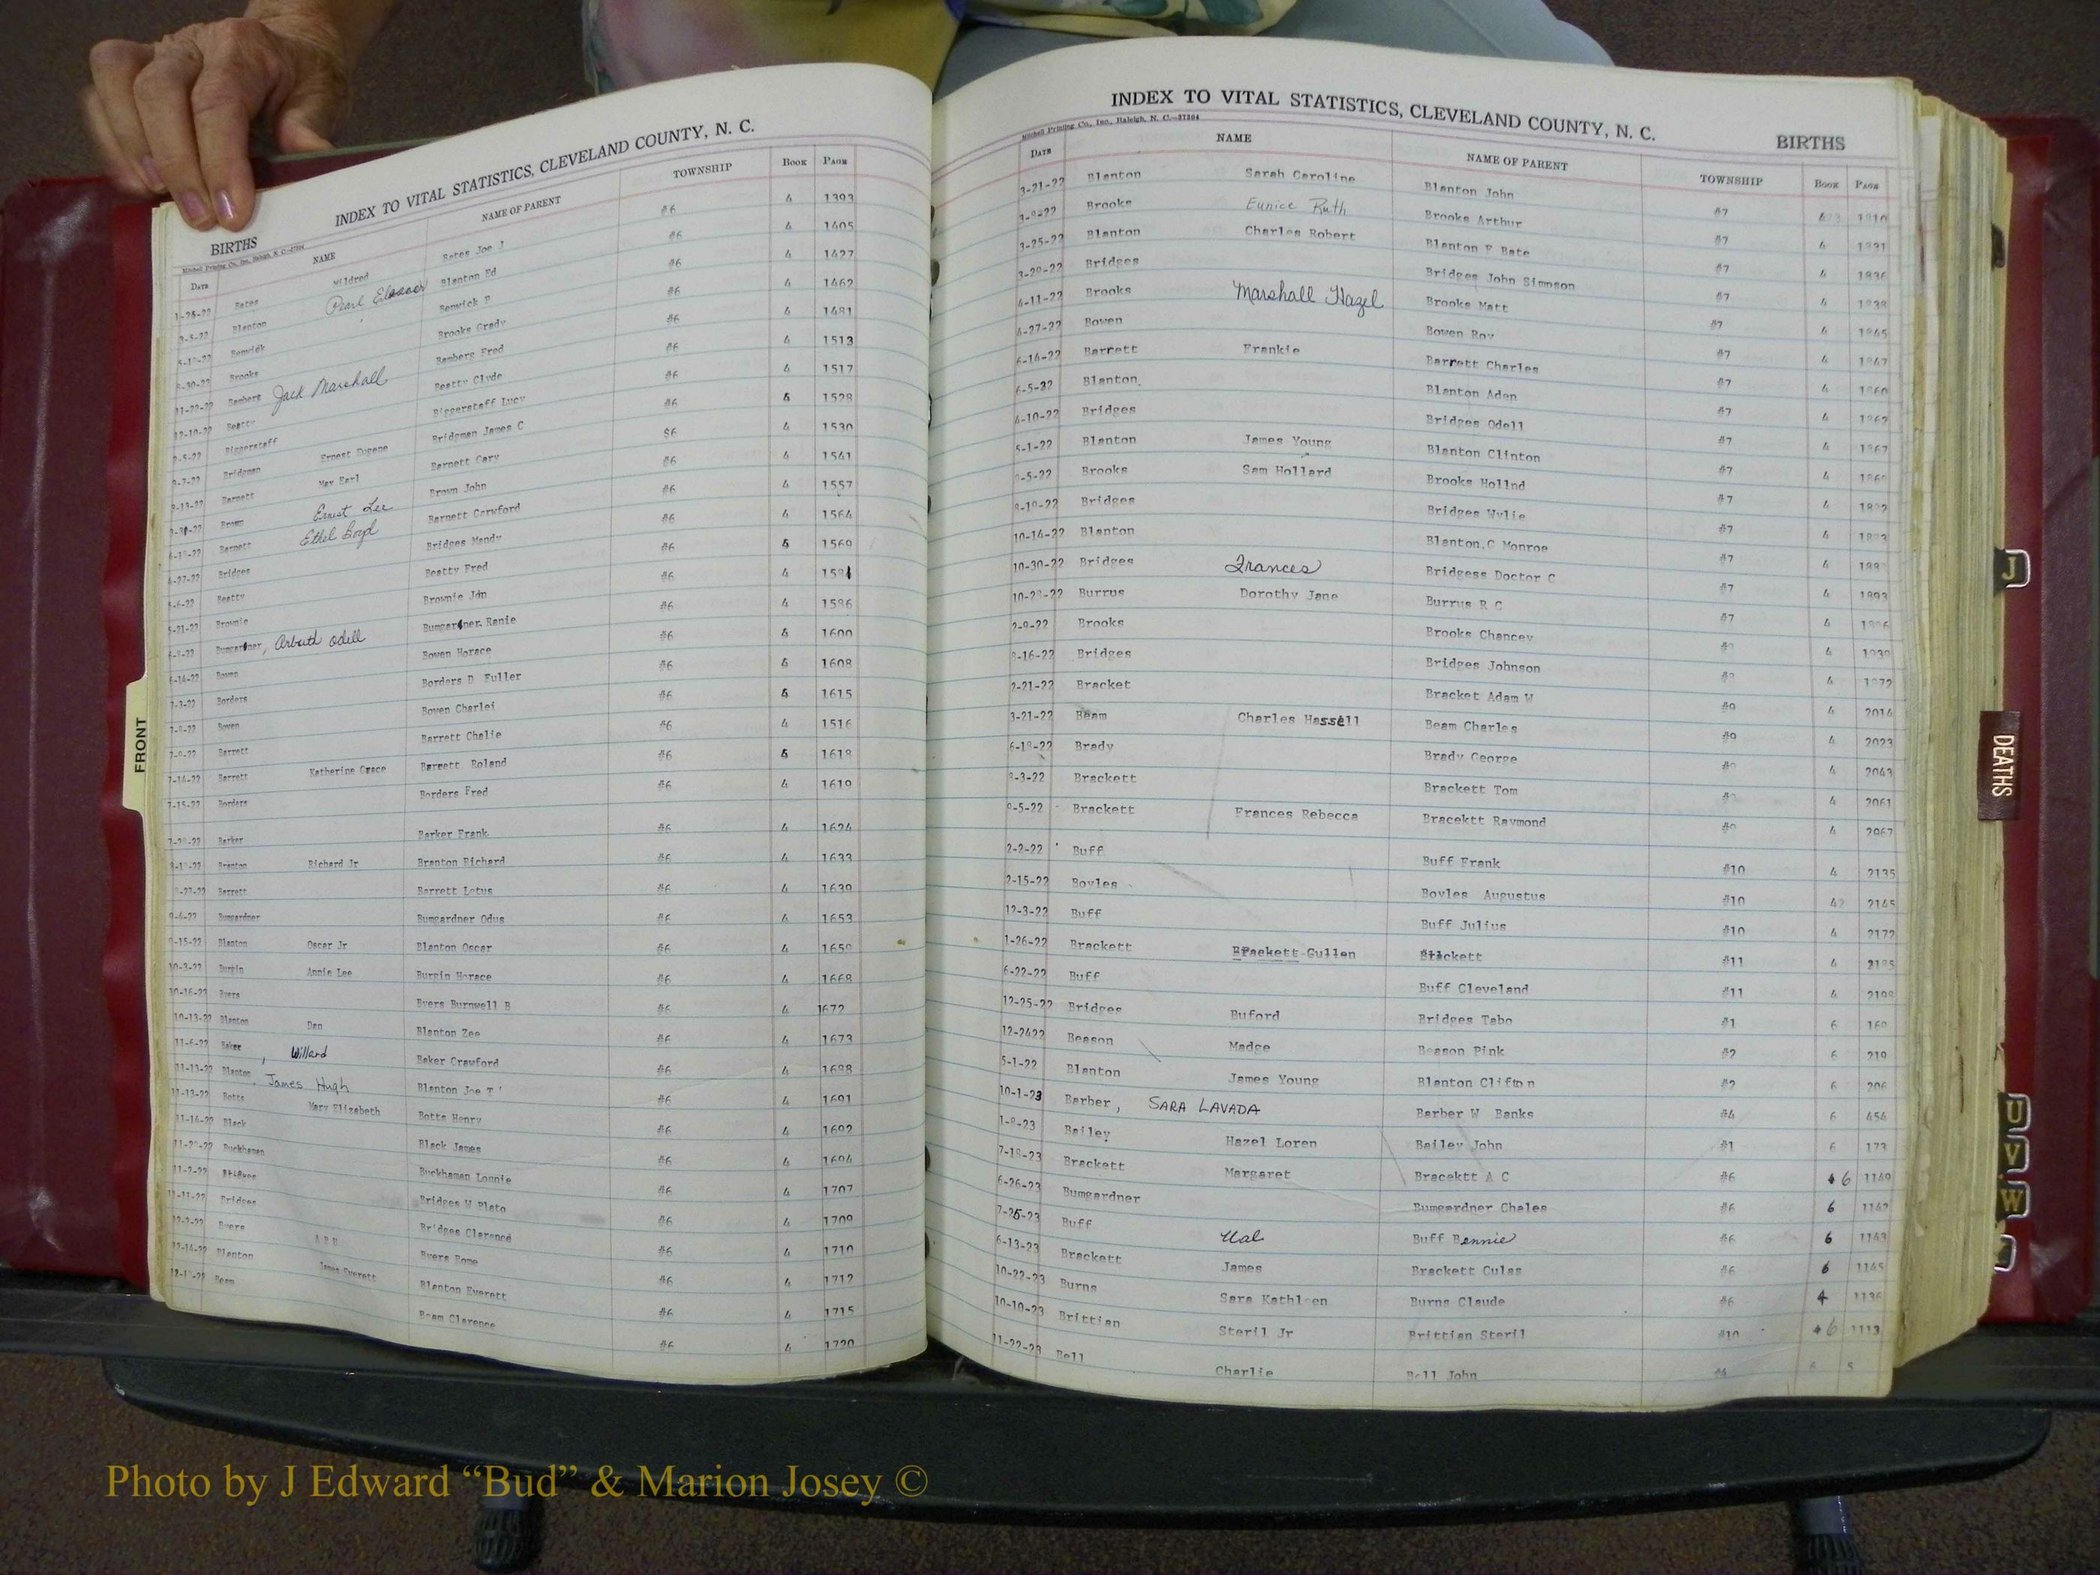 INDEX TO VITAL STATISTICS, CLEVELAND COUNTY, N. C.
BIRTHS
Mitchell Printing Co., Inc. Raleigh, N. C.
DATE NAME NAME OF PARENT TOWNSHIP BOOK PAGE
Bates Mildred Bates Joe J #6 4 1393
Blanton Pearl Blanton Ed #6 4 1405
Benwick Benwick P #6 4 1427
Brooks Brooks Grady #6 4 1462
11-22-22 Bamberg Jack Marshall Bamberg Fred #6 4 1481
12-10-22 Beatty Beatty Clyde #6 4 1513
Biggerstaff Biggerstaff Lucy #6 4 1517
Bridgman Ernest Eugene Bridgman James C #6 4 1528
Barnett May Earl Barnett Cary $6 4 1530
Brown Ernest Lee Brown John #6 4 1541
Barnett Ethel Boyd Barnett Corwford #6 4 1557
Bridges Bridges Mendy #6 4 1564
Beatty Beatty Fred #6 4 1569
5-21-22 Brownie Brownie Jon #6 4
Bumgardner, Odell Bumgardner Ranie #6 4 1586
6-14-22 Bowen Bowen Horace #6 4 1600
7-3-22 Borders Borders D Fuller #6 4 1608
Bowen Bowen Charlei #6 4 1615
Barrett Barrett Chalie #6 4 1516
7-14-22 Barrett Katherine Grace Barrett Roland #6 4 1618
7-15-22 Borders Borders Fred #6 4 1619
Barker Barker Frank #6 4 1624
Branton Richard Jr Branton Richard #6 4 1633
Barrett Barrett Lotus #6 4 1639
9-4-22 Bumgardner Bumgardner Odus #6 4 1653
9-15-22 Blanton Oscar Jr Blanton Oscar #6 4 1659
10-3-22 Burgin Annie Lee Burgin Horace #6 4 1668
10-16-22 Byers Byers Burnwell B #6 4 1672
10-13-22 Blanton Dan Blanton Zee #6 4 1673
11-6-22 Baker, Willard Baker Crawford #6 4 1688
11-13-22 Blanton, James Hugh Blanton Joe T #6 4 1691
11-13-22 Botts Mary Elizabeth Botts Henry #6 4 1692
11-14-22 Black Black James #6 4 1694
Buckhaman Buckhaman Lonnie #6 4 1707
11-2-22 Bridges W Plato #6 4 1709
11-11-22 Bridges Bridges Clarence #6 4 1710
12-2-22 Byers Byers Rome #6 4 1712
12-14-22 Blanton James Everett Blanton Everett #6 4 1715
Beam Beam Clarence #6 4 1720
INDEX TO VITAL STATISTICS, CLEVELAND COUNTY, N. C.
BIRTHS
Mitchell Printing Co., Inc., Raleigh, N. C.—37304
DATE NAME NAME OF PARENT TOWNSHIP BOOK PAGE
3-21-22 Blanton Sarah Caroline Blanton John #7 1810
Brooks Eunice Ruth Brooks Arthur #7 4
3-25-22 Blanton Charles Robert Blanton F Bate #7 4 1836
Bridges Bridges John Simpson #7 4 1838
4-11-22 Brooks Marshall Hazel Brooks Matt #7 4 1845
4-27-22 Bowen Bowen Roy #7 4 1847
6-14-22 Barrett Frankie Barrett Charles #7 4 1860
6-5-22 Blanton Blanton Aden #7 4 1862
4-10-22 Bridges Bridges Odell #7 4 1867
5-1-22 Blanton James Young Blanton Clinton #7 4
Brooks Sam Hollard Brooks Hollnd #7 4
Bridges Bridges Wylie #7 4
10-14-22 Blanton Blanton,C Monroe #7 4
10-30-22 Bridges Frances Bridgess Doctor C #7 4 1893
10-28-22 Burrus Dorothy Jane Burrus R C #7 4
2-9-22 Brooks Brooks Chancey 4
Bridges Bridges Johnson 4
2-21-22 Bracket Bracket Adam W #9 4 2014
3-21-22 Beam Charles Hassell Beam Charles #9 4 2023
6-18-22 Brady Brady George 4 2043
8-3-22 Brackett Brackett Tom 4 2061
9-5-22 Brackett Frances Rebecca Bracektt Raymond #9 4 2067
2-2-22 Buff Buff Frank #10 4 2135
2-15-22 Boyles Boyles Augustus #10 42 2145
12-3-22 Buff Buff Julius #10 4 2172
1-26-22 Brackett Brackett Gullen Brackett #11 4
6-22-22 Buff Buff Cleveland #11 4 2198
12-25-22 Bridges Buford Bridges Tabo #1 6 160
12-2422 Beason Madge Beason Pink #2 6 219
5-1-22 Blanton James Young Blanton Clifton #2 6 206
10-1-23 Barber, SARA LAVADA Barber W Banks #4 6 454
1-8-23 Bailey Hazel Loren Bailey John #1 6 173
7-18-23 Brackett Margaret Bracektt A C #6 6 1149
6-26-23 Bumgardner Bumgardner Chales #6 6 1142
7-25-23 Buff Hal Buff Bennie #6 6 1143
6-13-23 Brackett James Brackett Culas #6 6 1145
10-22-23 Burns Sara Kathleen Burns Claude #6 4 1136
10-10-23 Brittian Steril Jr Brittian Steril #10 6 1113
11-22-23 Bell Charlie Bell John 6 5
FRONT
J
DEATHS
U
V
W
Photo by J Edward “Bud” & Marion Josey ©